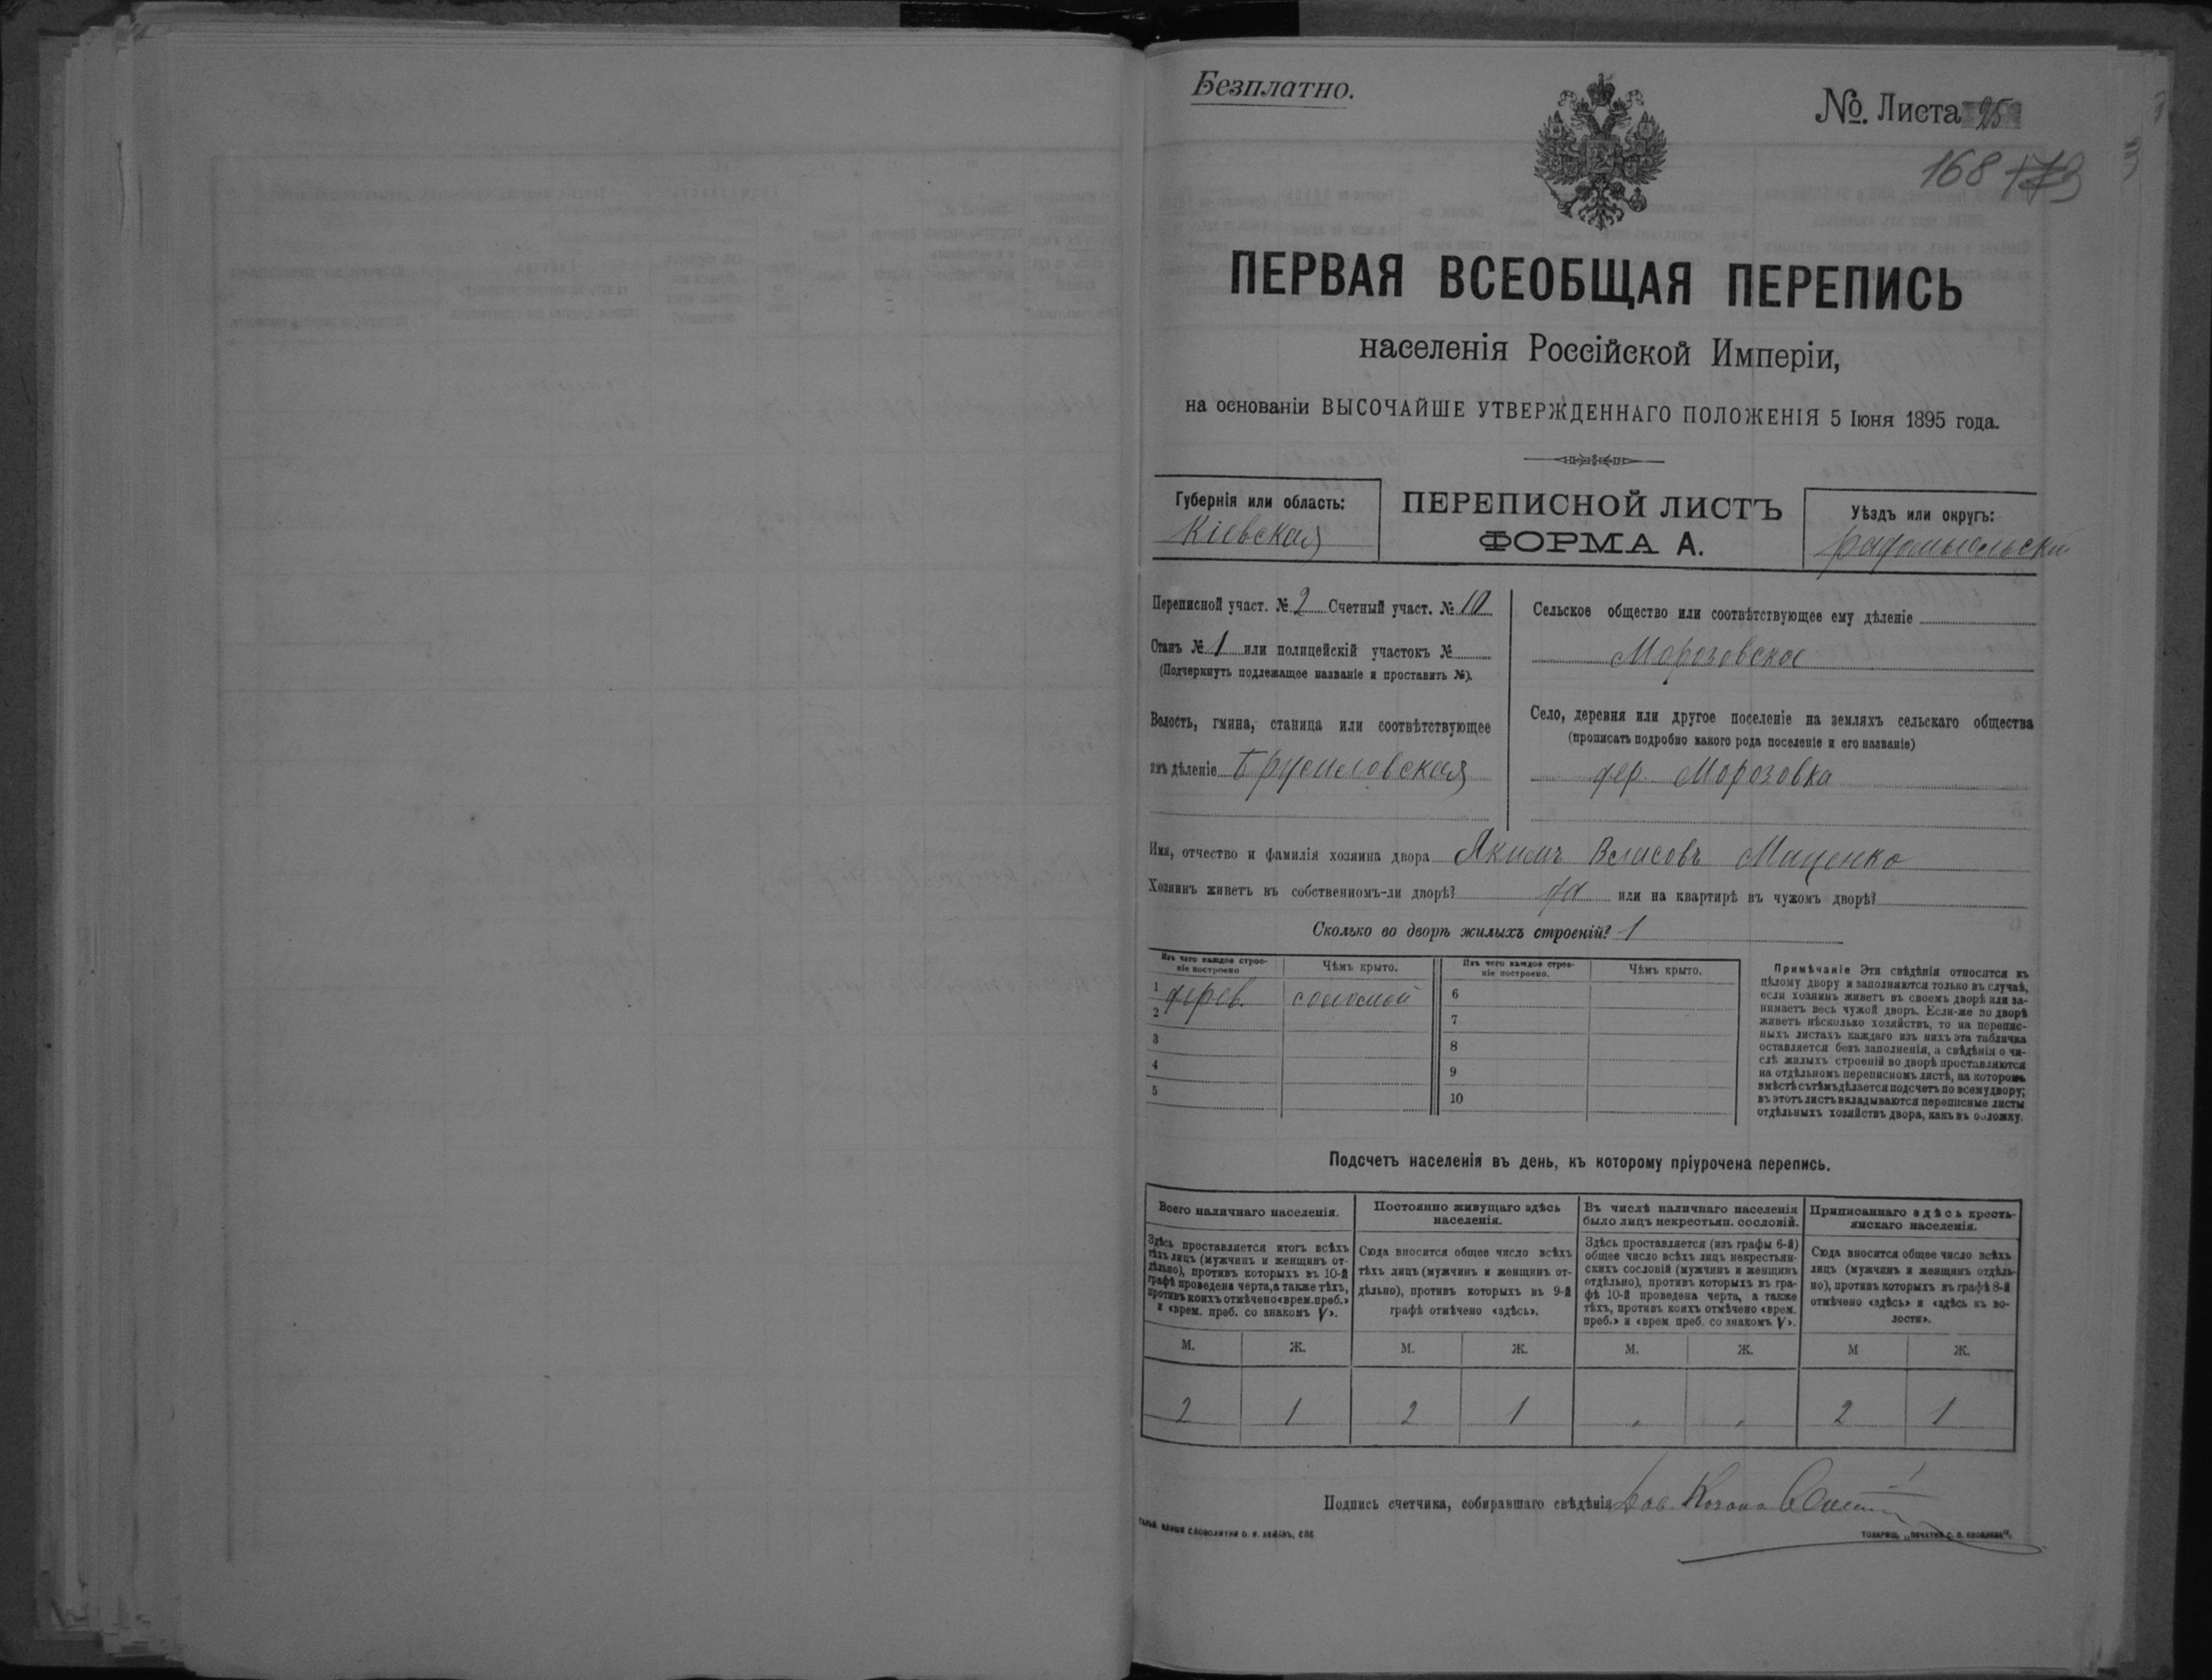 Безплатно.
№. Листа 25
168 173
ПЕРВАЯ ВСЕОБЩАЯ ПЕРЕПИСЬ
населенія Россійской Имперіи,
на основаніи ВЫСОЧАЙШЕ УТВЕРЖДЕННАГО ПОЛОЖЕНІЯ 5 Іюня 1895 года.
Губернія или область:
Кіевская
ПЕРЕПИСНОЙ ЛИСТЪ
ФОРМА А.
Уѣздъ или округъ:
Радомысльски
Переписной участ. № 2 Счетный участ. № 10
Станъ № 1 или полицейскій участокъ №
(Подчеркнуть подлежащее названіе и проставить №).
Волость, гмина, станица или соотвѣтствующее
имъ дѣленіе Брусиловская
Сельское общество или соотвѣтствующее ему дѣленіе
Морозовское
Село, деревня или другое поселеніе на земляхъ сельскаго общества
(прописать подробно какого рода поселеніе и его названіе)
дер. Морозовка
Имя, отчество и фамилія хозяина двора Якимъ Власовъ Маценко
Хозяинъ живетъ въ собственномъ-ли дворѣ? да или на квартирѣ въ чужомъ дворѣ?
Сколько во дворѣ жилыхъ строеній? 1
Изъ чего каждое строе-
ніе построено
Чѣмъ крыто.
Изъ чего каждое строе-
ніе построено.
Чѣмъ крыто.
1 дерев. соломой 6
2 7
3 8
4 9
5 10
Примѣчаніе Эти свѣдѣнія относятся къ
цѣлому двору и заполняются только въ случаѣ,
если хозяинъ живетъ въ своемъ дворѣ или за-
нимаетъ весь чужой дворъ. Если-же во дворѣ
живетъ нѣсколько хозяйствъ, то на перепис-
ныхъ листахъ каждаго изъ нихъ эта табличка
оставляется безъ заполненія, а свѣдѣнія о чи-
слѣ жилыхъ строеній во дворѣ проставляются
на отдѣльномъ переписномъ листѣ, на которомъ
вмѣстѣ съ тѣмъ дѣлается подсчетъ по всему двору;
въ этотъ листъ вкладываются переписные листы
отдѣльныхъ хозяйствъ двора, какъ въ обложку.
Подсчетъ населенія въ день, къ которому пріурочена перепись.
Всего наличнаго населенія.
Здѣсь проставляется итогъ всѣхъ
тѣхъ лицъ (мужчинъ и женщинъ от-
дѣльно), противъ которыхъ въ 10-й
графѣ проведена черта, а также тѣхъ,
противъ коихъ отмѣчено «врем. преб.»
и «врем. преб. со знакомъ V».
Постоянно живущаго здѣсь
населенія.
Сюда вносится общее число всѣхъ
тѣхъ лицъ (мужчинъ и женщинъ от-
дѣльно), противъ которыхъ въ 9-й
графѣ отмѣчено «здѣсь».
Въ числѣ наличнаго населенія
было лицъ некрестьян. сословій.
Здѣсь проставляется (изъ графы 6-й)
общее число всѣхъ лицъ некрестьян-
скихъ сословій (мужчинъ и женщинъ
отдѣльно), противъ которыхъ въ гра-
фѣ 10-й проведена черта, а также
тѣхъ, противъ коихъ отмѣчено «врем.
преб.» и «врем преб. со знакомъ V».
Приписаннаго здѣсь кресть-
янскаго населенія.
Сюда вносится общее число всѣхъ
лицъ (мужчинъ и женщинъ отдѣль-
но), противъ которыхъ въ графѣ 8-й
отмѣчено «здѣсь» и «здѣсь въ во-
лости».
М. Ж. М. Ж. М. Ж. М Ж.
2 1 2 1 " " 2 1
Подпись счетчика, собиравшаго свѣдѣнія
ТОВАРИЩ. „ПЕЧАТНЯ С. П. ЯКОВЛЕВА".